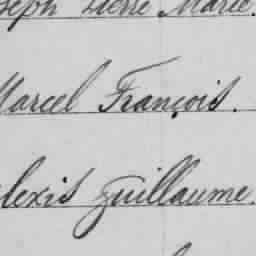 Joseph Pierre Marie.
Marcel François.
Alexis Guillaume.